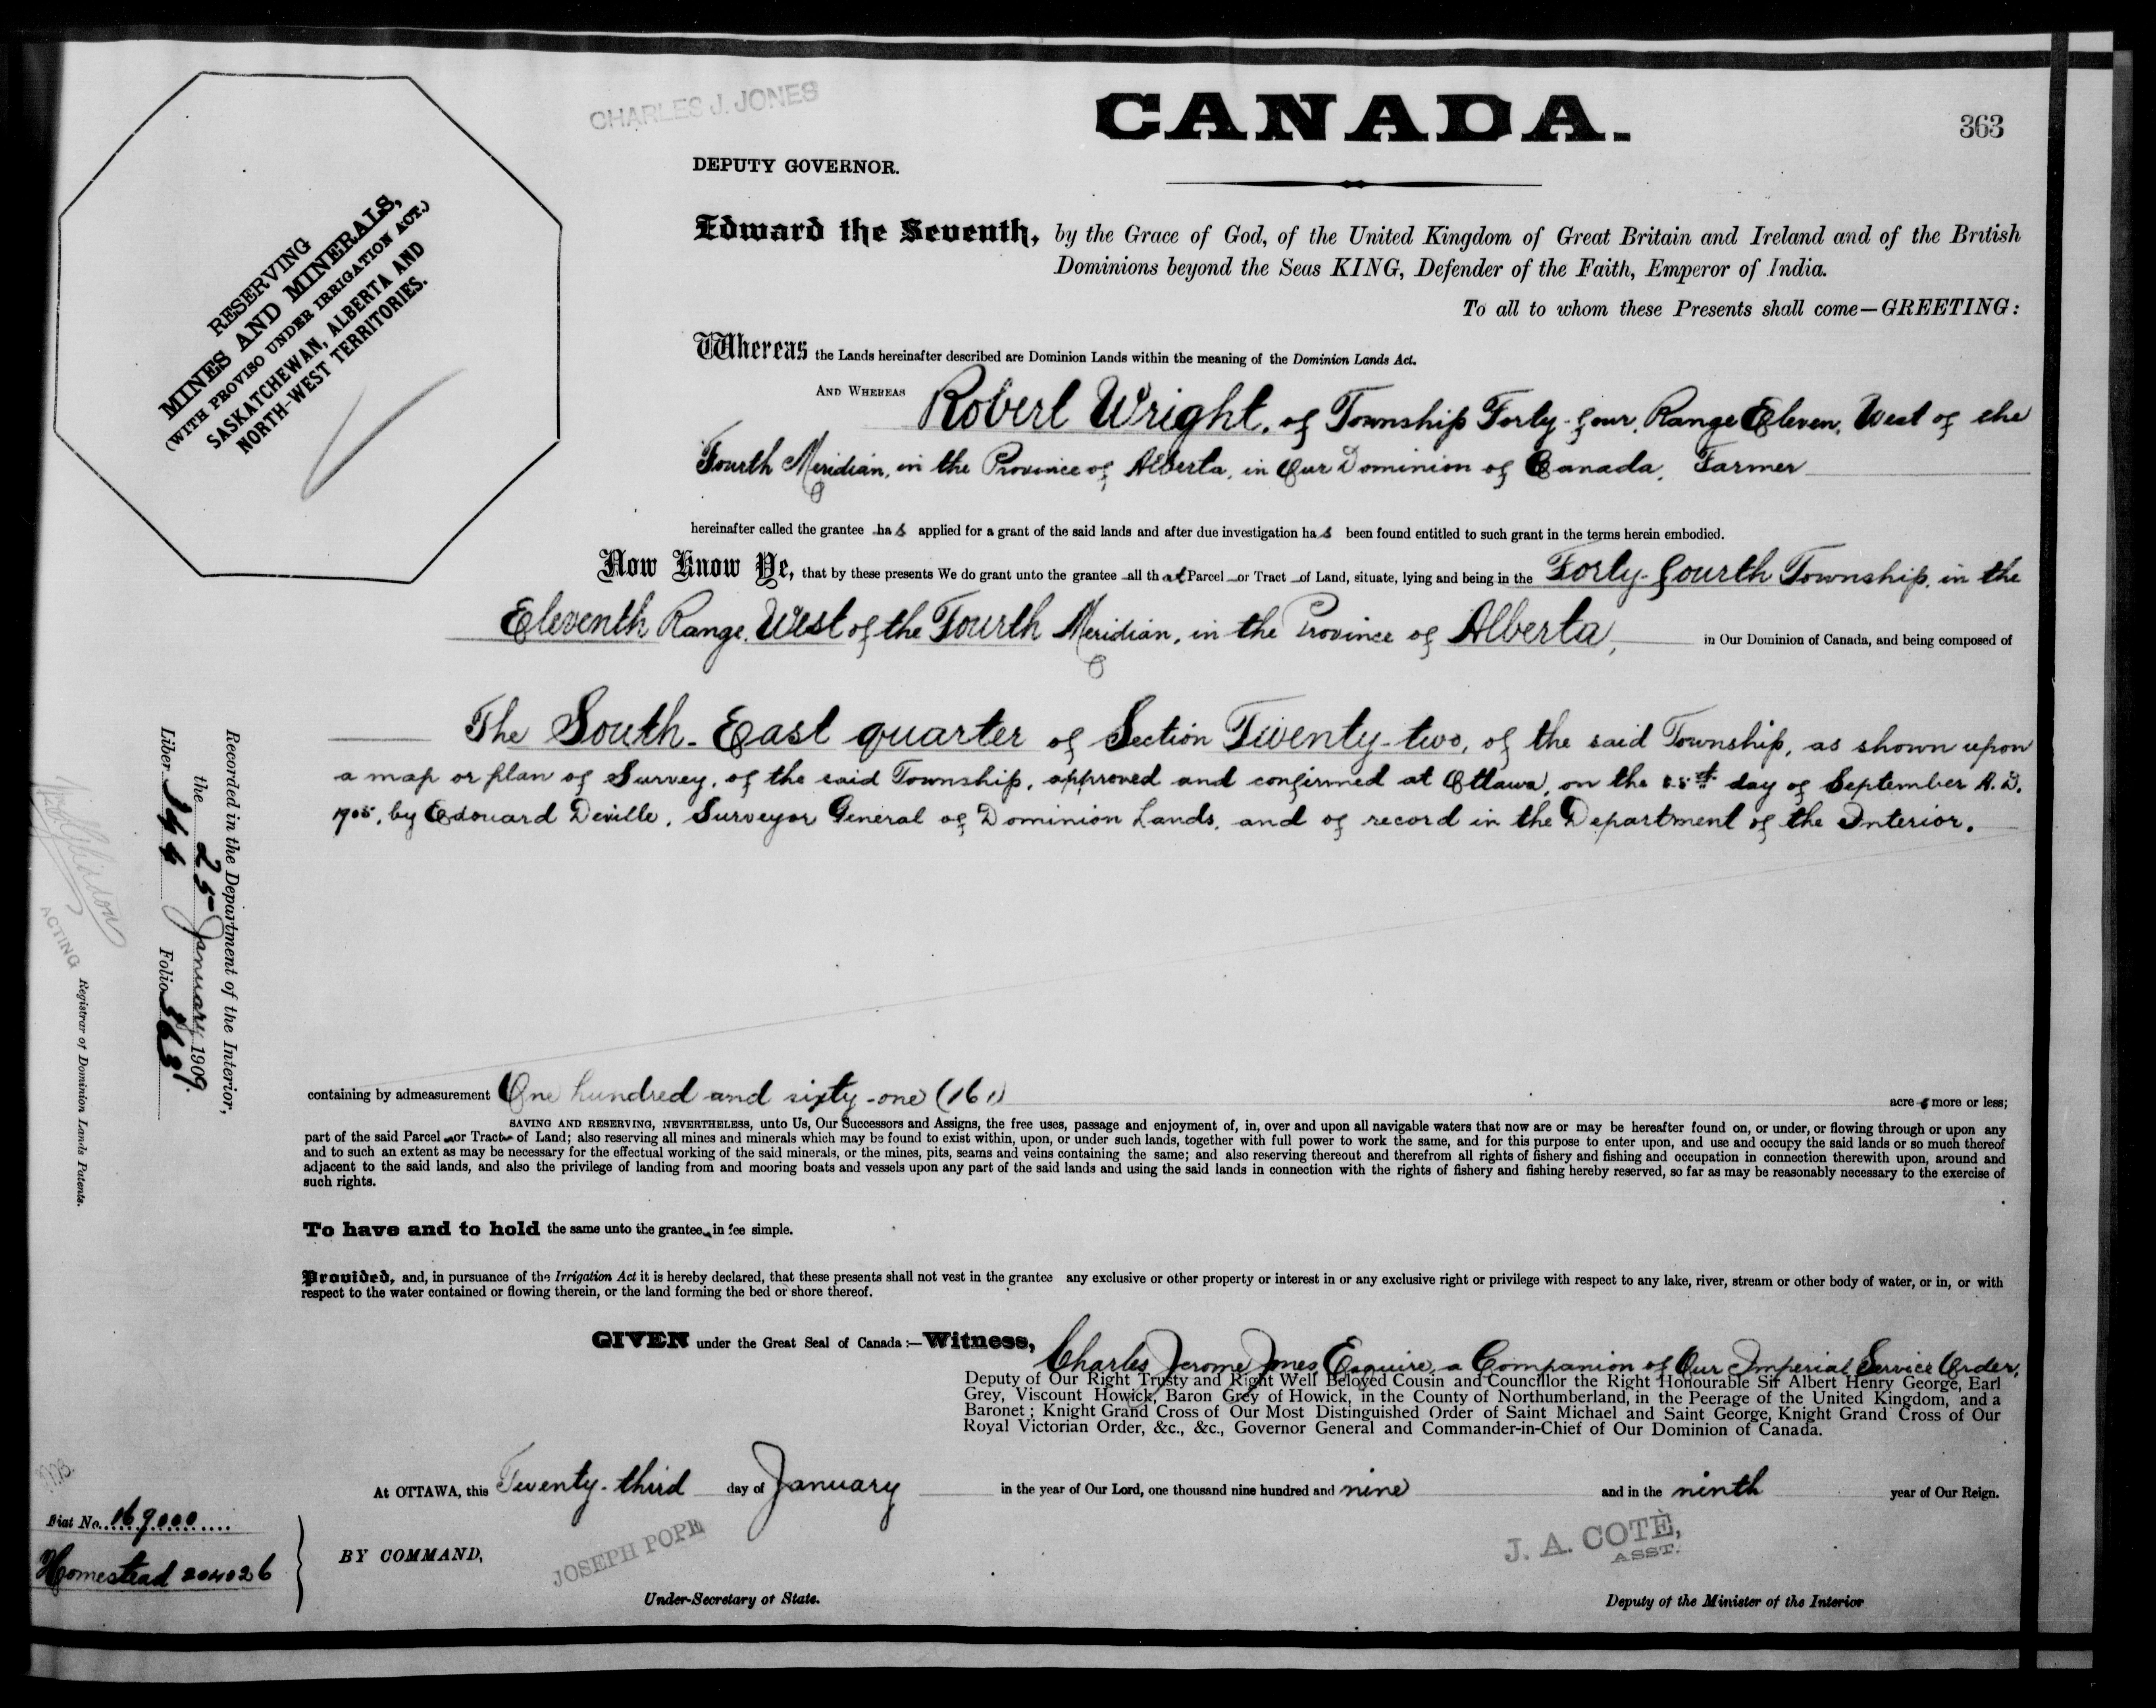 CHARLES J. JONES
CANADA.
363
DEPUTY GOVERNOR.
RESERVING
MINES AND MINERALS,
(WITH PROVISO UNDER IRRIGATION ACT.)
SASKATCHEWAN, ALBERTA AND
NORTH-WEST TERRITORIES.
Edward the Seventh, by the Grace of God, of the United Kingdom of Great Britain and Ireland and of the British
Dominions beyond the Seas KING, Defender of the Faith, Emperor of India.
To all to whom these Presents shall come—GREETING:
Whereas the Lands hereinafter described are Dominion Lands within the meaning of the Dominion Lands Act.
AND WHEREAS Robert Wright, of Township Forty-four, Range Eleven, West of the
Fourth Meridian, in the Province of Alberta, in Our Dominion of Canada, Farmer
hereinafter called the grantee has applied for a grant of the said lands and after due investigation has been found entitled to such grant in the terms herein embodied.
Now Know Ye, that by these presents We do grant unto the grantee all that Parcel or Tract of Land, situate, lying and being in the Forty-fourth Township, in the
Eleventh Range, West of the Fourth Meridian, in the Province of Alberta, in Our Dominion of Canada, and being composed of
The South-East quarter of Section Twenty-two, of the said Township, as shown upon
a map or plan of Survey, of the said Township, approved and confirmed at Ottawa, on the day of September A.D.
1905, by Edouard Deville, Surveyor General of Dominion Lands, and of record in the Department of the Interior.
Recorded in the Department of the Interior,
the 25 January 1909.
Liber 144 Folio 363
ACTING Registrar of Dominion Lands Patents.
containing by admeasurement One hundred and sixty-one (161) acres more or less;
SAVING AND RESERVING, NEVERTHELESS, unto Us, Our Successors and Assigns, the free uses, passage and enjoyment of, in, over and upon all navigable waters that now are or may be hereafter found on, or under, or flowing through or upon any
part of the said Parcel or Tract of Land; also reserving all mines and minerals which may be found to exist within, upon, or under such lands, together with full power to work the same, and for this purpose to enter upon, and use and occupy the said lands or so much thereof
and to such an extent as may be necessary for the effectual working of the said minerals, or the mines, pits, seams and veins containing the same; and also reserving thereout and therefrom all rights of fishery and fishing and occupation in connection therewith upon, around and
adjacent to the said lands, and also the privilege of landing from and mooring boats and vessels upon any part of the said lands and using the said lands in connection with the rights of fishery and fishing hereby reserved, so far as may be reasonably necessary to the exercise of
such rights.
To have and to hold the same unto the grantee in fee simple.
Provided, and, in pursuance of the Irrigation Act it is hereby declared, that these presents shall not vest in the grantee any exclusive or other property or interest in or any exclusive right or privilege with respect to any lake, river, stream or other body of water, or in, or with
respect to the water contained or flowing therein, or the land forming the bed or shore thereof.
GIVEN under the Great Seal of Canada:—Witness, Charles Jerome Jones Esquire, a Companion of Our Imperial Service Order,
Deputy of Our Right Trusty and Right Well Beloved Cousin and Councillor the Right Honourable Sir Albert Henry George, Earl
Grey, Viscount Howick, Baron Grey of Howick, in the County of Northumberland, in the Peerage of the United Kingdom, and a
Baronet; Knight Grand Cross of Our Most Distinguished Order of Saint Michael and Saint George, Knight Grand Cross of Our
Royal Victorian Order, &c., &c., Governor General and Commander-in-Chief of Our Dominion of Canada.
At OTTAWA, this Twenty-third day of January in the year of Our Lord, one thousand nine hundred and nine and in the ninth year of Our Reign.
Fiat No. 169000
Homestead 204026
BY COMMAND,
JOSEPH POPE
Under-Secretary of State.
J. A. COTÈ,
ASST.
Deputy of the Minister of the Interior